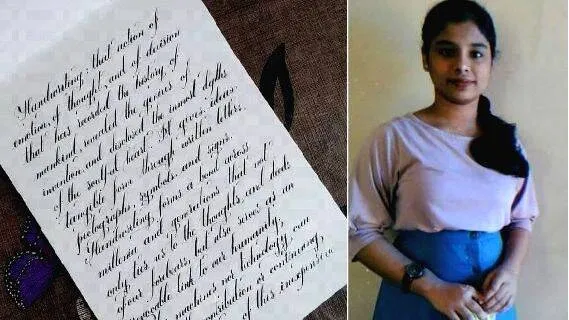 Handwriting, that action of
emotion, of thought, and of decision
that has recorded the history of
mankind, revealed the genius of
invention and disclosed the inmost depths
of the soulful heart. It gives ideas
tangible form through written letters,
pictographs, symbols and signs.
Handwriting forms a bond across
millenia and generations that not
only ties us to the thoughts and deeds
of our forebears, but also serves as an
link to our humanity.
machines nor technology can
contribution or continuing
of this